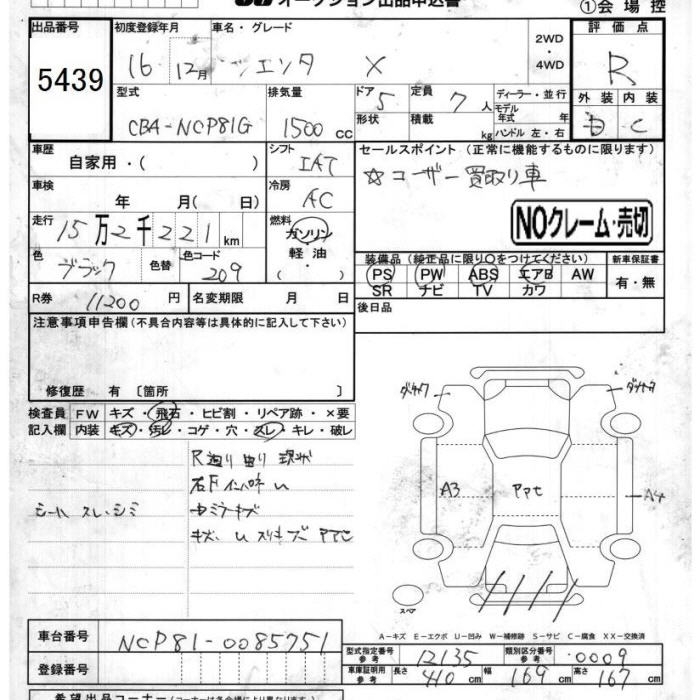 オークション出品申込書
①会場控
出品番号 初度登録年月 車名・グレード 評価点
5439
16 12月 シエンタ X
2WD
・
4WD
R
型式 排気量 ドア 定員 ディーラー・並行 外装 内装
CBA-NCP81G 1500cc 5 7人
形状 積載 kg モデル年式 年
ハンドル 左・右
C
車歴 シフト セールスポイント (正常に機能するものに限ります)
自家用・( ) IAT
☆ユーザー買取り車
車検 冷房
年 月( 日) AC
NOクレーム・売切
走行 燃料
15万2千221km
ガソリン
軽油
・( )
色 色替 色コード
ブラック 209
装備品 (純正品に限り○をつけてください) 新車保証書
PS PW ABS エアB AW 有・無
SR ナビ TV カワ
R券 11200円 名変期限 月 日
後日品
注意事項申告欄(不具合内容等は具体的に記入して下さい)
修復歴 有〔箇所 〕
検査員 FW キズ・飛石・ヒビ割・リペア跡・×要
記入欄 内装 キズ・汚レ・コゲ・穴・スレ・キレ・破レ
シート スレ・シミ
キズ
A3
A4
スペア
A-キズ E-エクボ U-凹み W-補修跡 S-サビ C-腐食 XX-交換済
車台番号 NCP81-0085751
登録番号
型式指定番号 参考 12135 類別区分番号 参考 0009
車庫証明用 参考 長さ 410cm 幅 169cm 高さ 167cm
希望出品コーナー